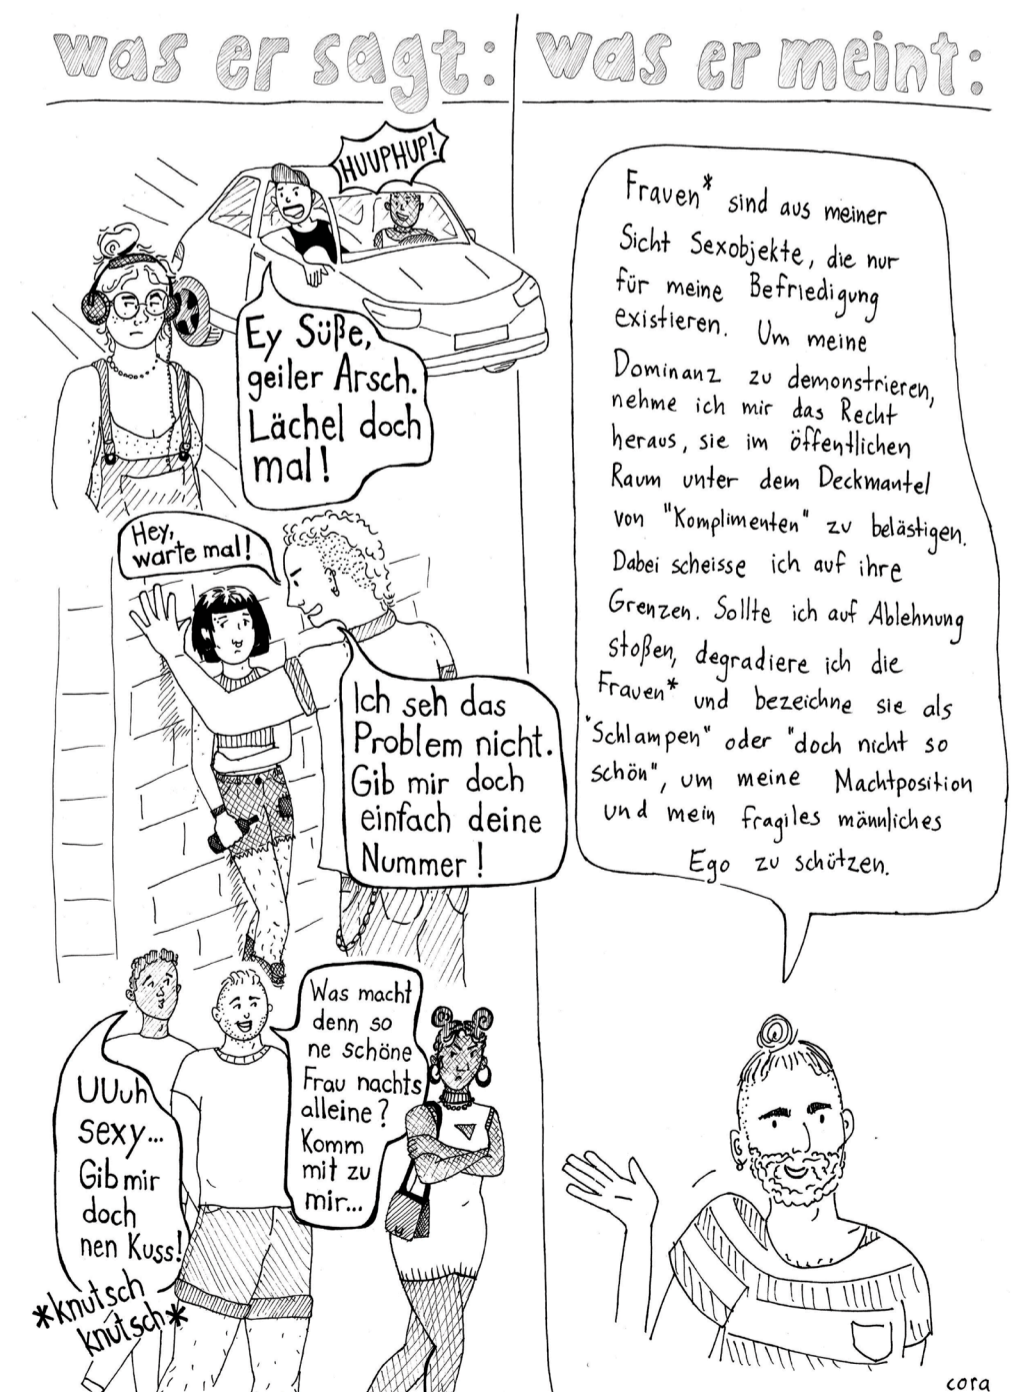 was er sagt:
HUUPHUP!
Ey Süße,
geiler Arsch.
Lächel doch
mal!
Hey,
warte mal!
Ich seh das
Problem nicht.
Gib mir doch
einfach deine
Nummer!
UUuh
sexy...
Gib mir
doch
nen Kuss!
*knutsch
knutsch*
Was macht
denn so
ne schöne
Frau nachts
alleine?
Komm
mit zu
mir...
was er meint:
Frauen* sind aus meiner
Sicht Sexobjekte, die nur
für meine Befriedigung
existieren. Um meine
Dominanz zu demonstrieren,
nehme ich mir das Recht
heraus, sie im öffentlichen
Raum unter dem Deckmantel
von "Komplimenten" zu belästigen.
Dabei scheisse ich auf ihre
Grenzen. Sollte ich auf Ablehnung
stoßen, degradiere ich die
Frauen* und bezeichne sie als
"Schlampen" oder "doch nicht so
schön", um meine Machtposition
und mein fragiles männliches
Ego zu schützen.
cora